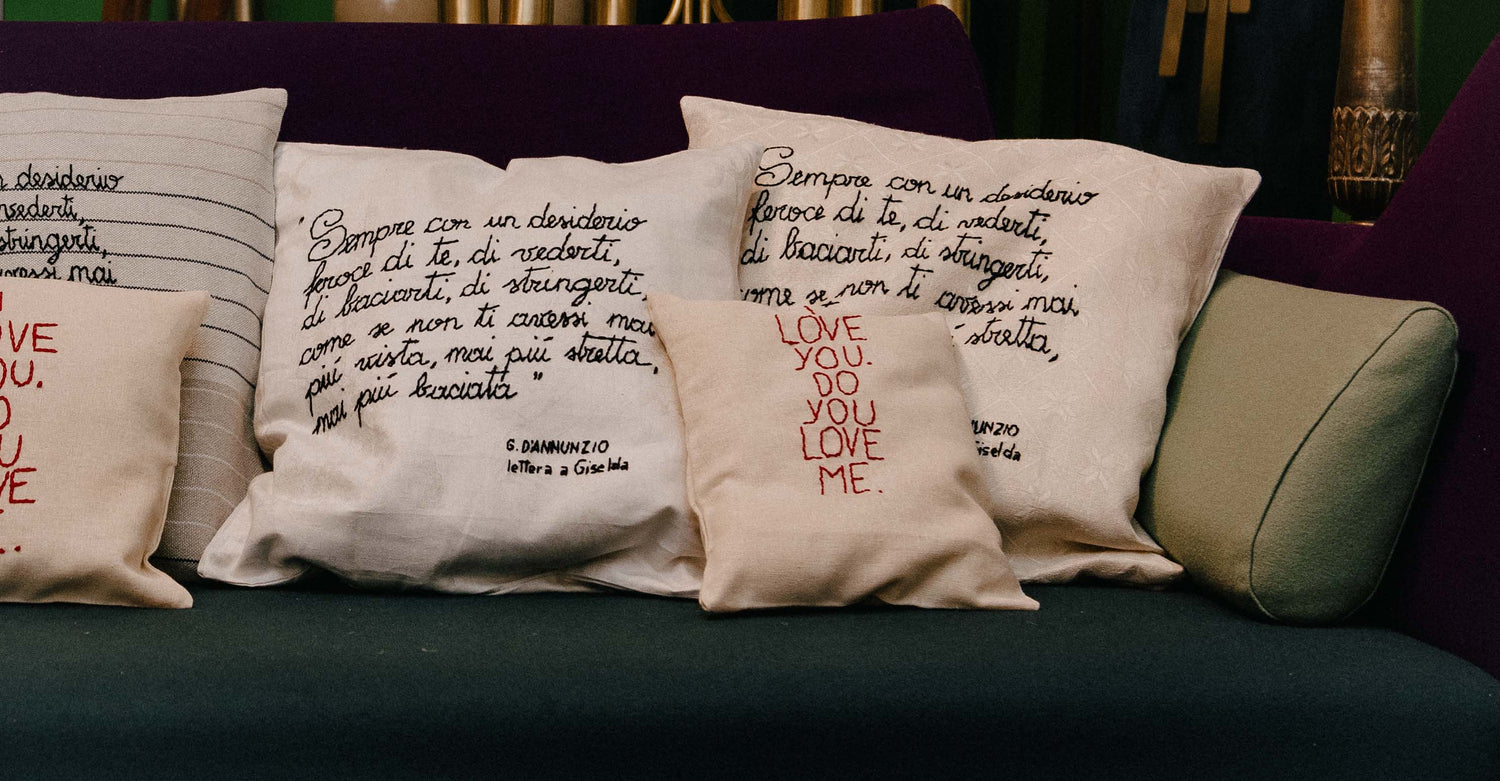 desiderio
stringerti,
mai
LOVE
YOU.
"Sempre con un desiderio
feroce di te, di vederti,
di baciarti, di stringerti,
come se non ti avessi mai
più vista, mai più stretta,
mai più baciata"
G. D'ANNUNZIO
lettera a Giselda
LOVE
YOU.
DO
YOU
LOVE
ME.
Sempre con un desiderio
feroce di te, di vederti,
di baciarti, di stringerti,
come se non ti avessi mai
stretta,